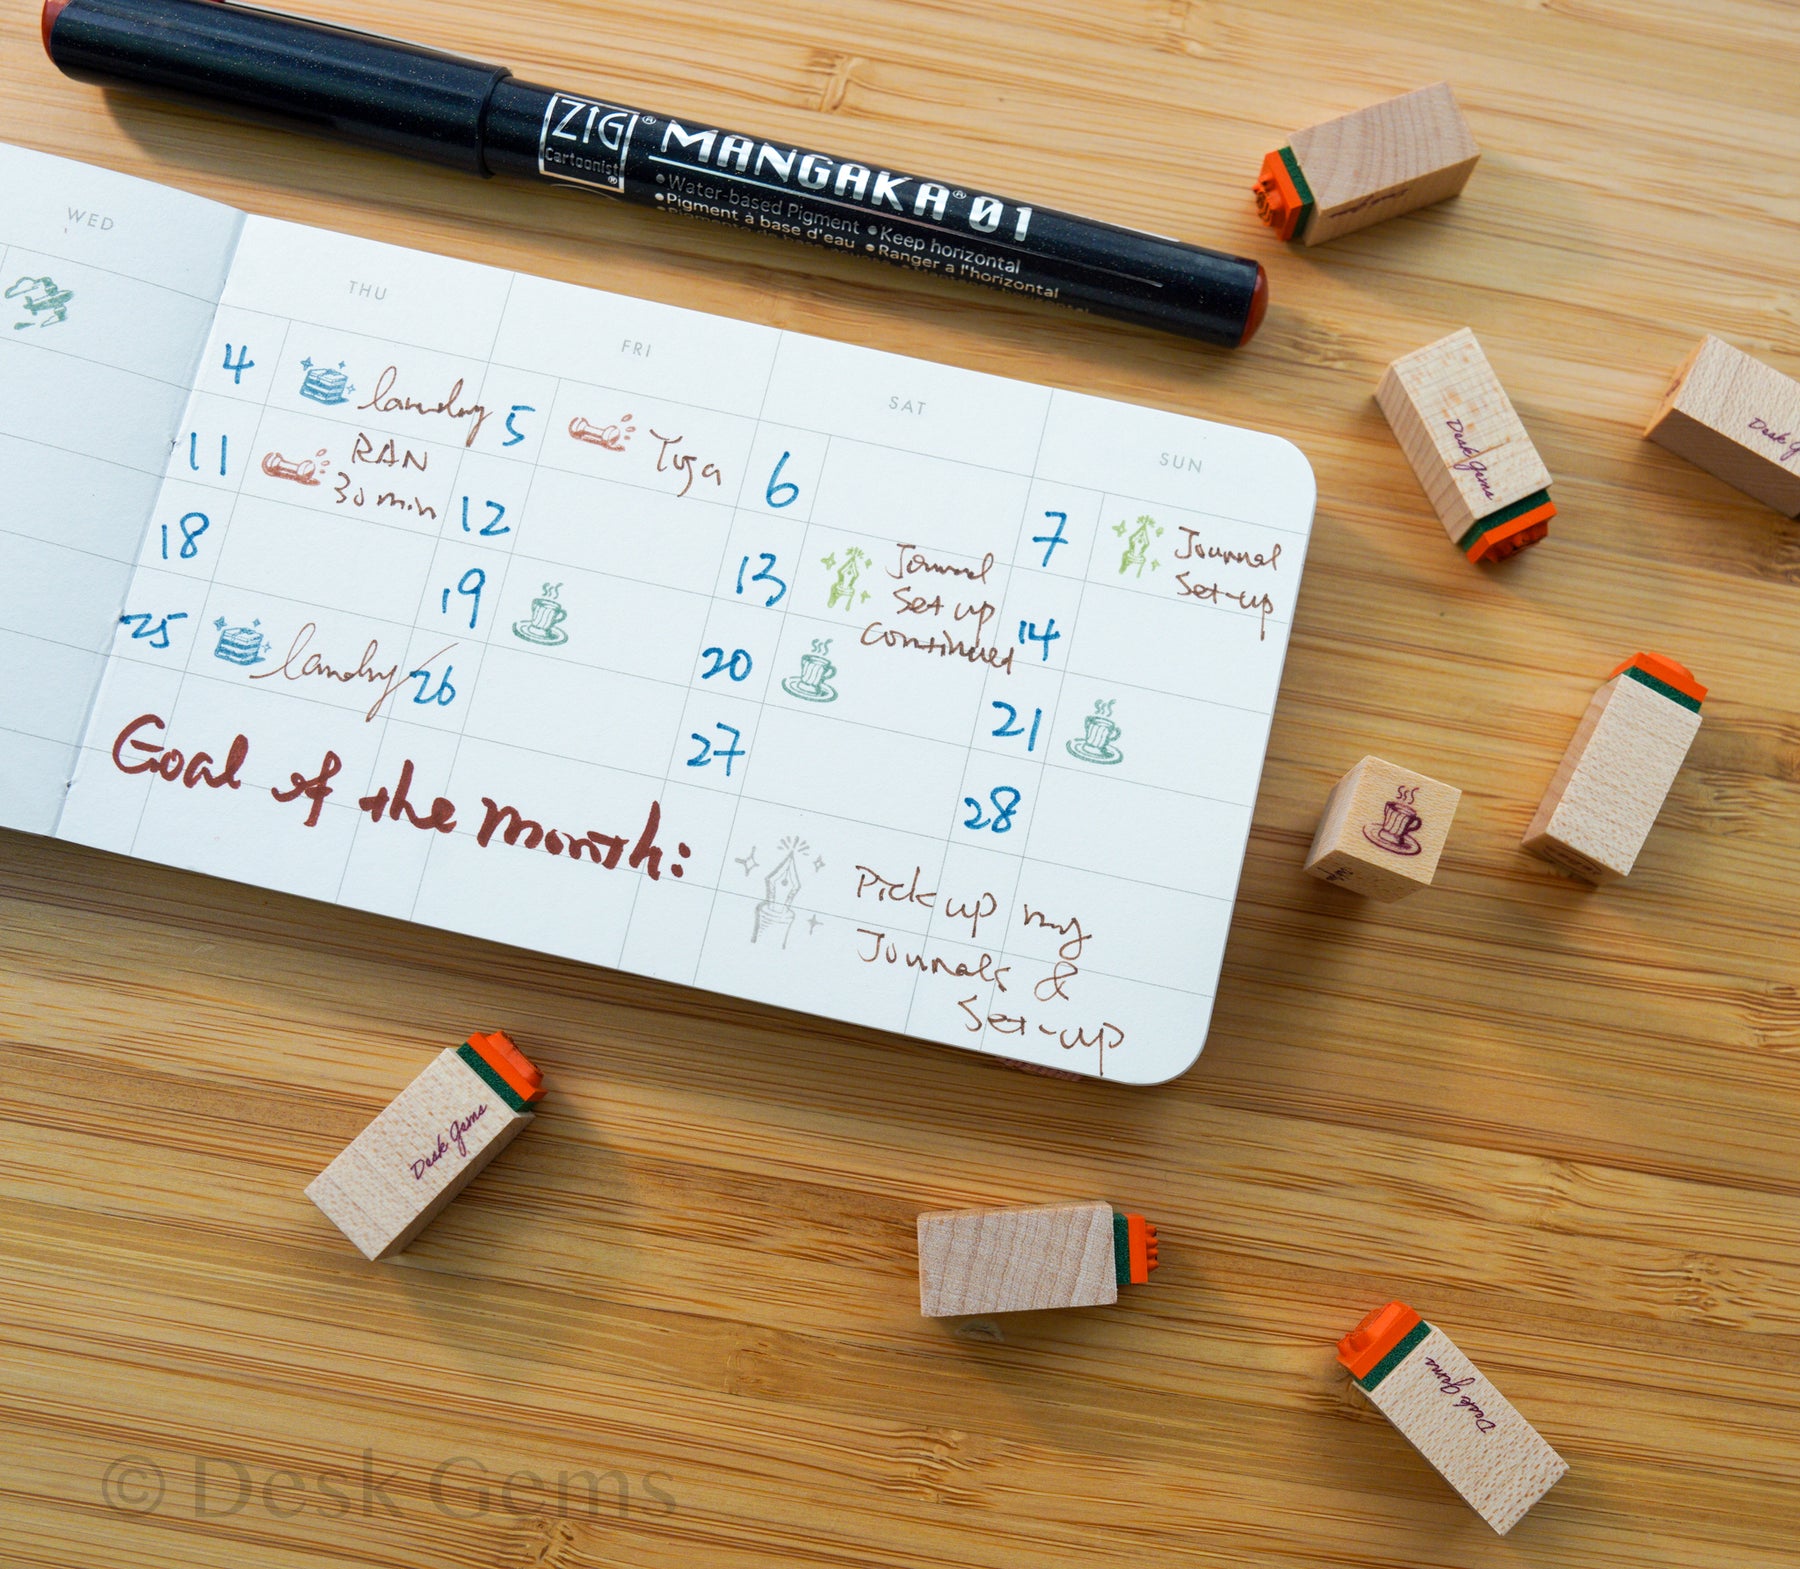 ZIG®
Cartoonist®
MANGAKA® 01
•Water-based Pigment •Keep horizontal
•Pigment à base d'eau •Ranger a l'horizontal
WED
THU
FRI
SAT
SUN
4
laundry
5
Yoga
6
7
Journal
Set-up
11
RAN
30 min
12
13
Journal
Set up
continued
14
18
19
20
21
25
laundry
26
27
28
Goal of the Month:
Pick up my
Journals &
Set-up
Desk Gems
Desk G
Desk Gems
Desk Gems
© Desk Gems